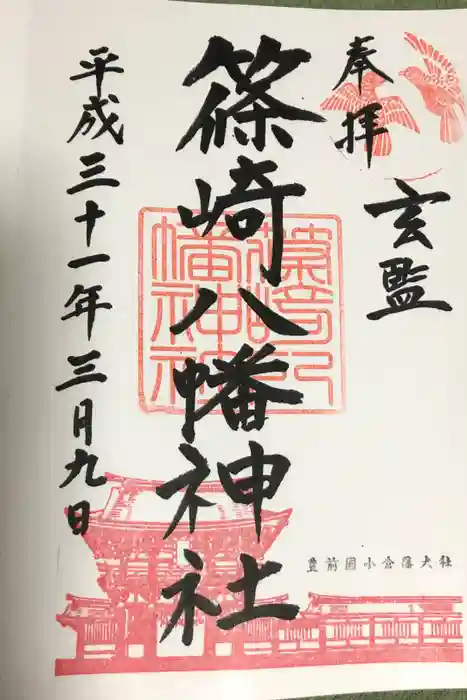 玄監
奉拝
篠崎八幡神社
平成三十一年三月九日
豊前國小倉藩大社